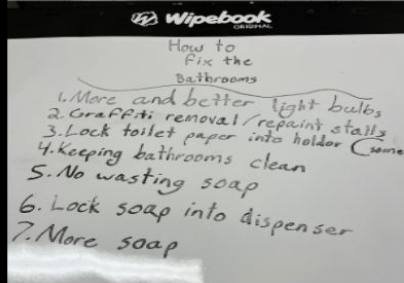 Wipebook
ORIGINAL
How to
Fix the
Bathrooms
1. More and better light bulbs
2. Graffiti removal/repaint stalls
3. Lock toilet paper into holder (some
4. Keeping bathrooms clean
5. No wasting soap
6. Lock soap into dispenser
7. More soap